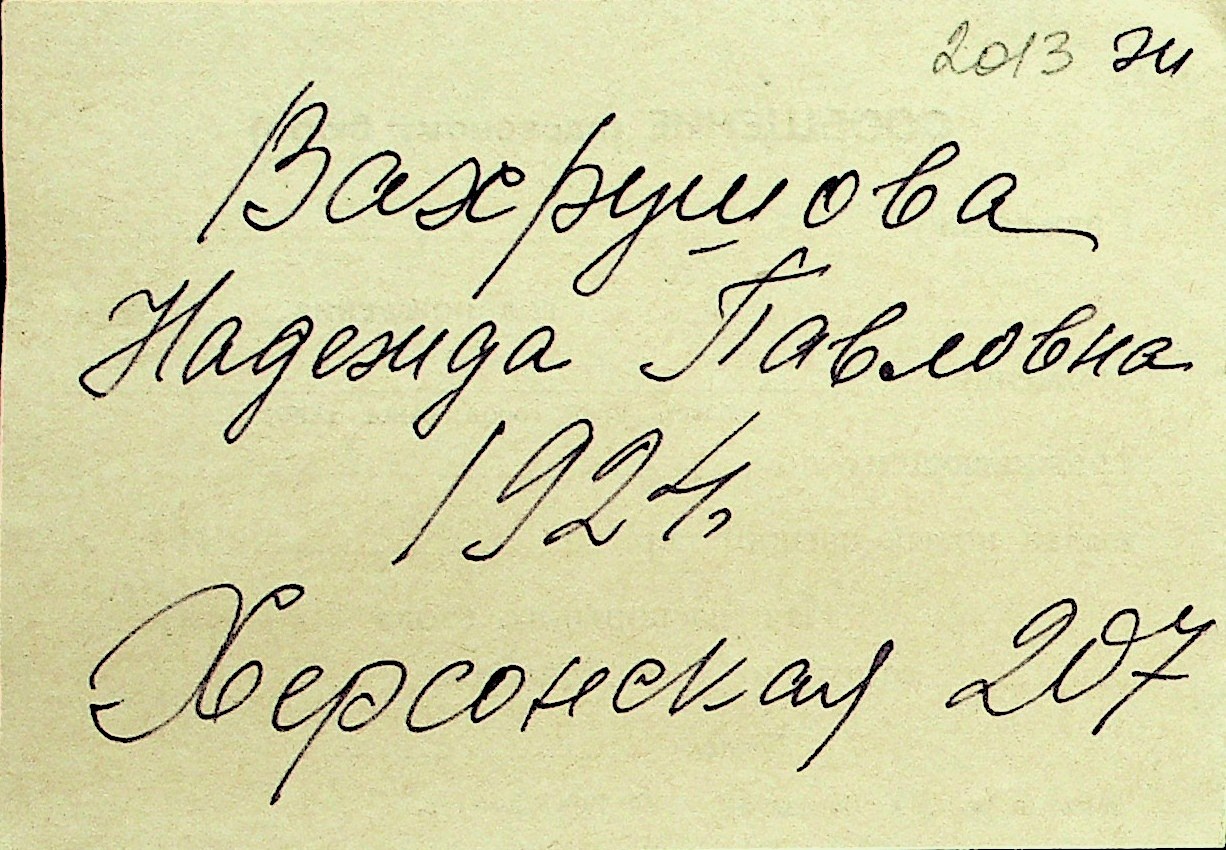 2013 эи
Вахрушова
Надежда Павловна
1924
Херсонская 207